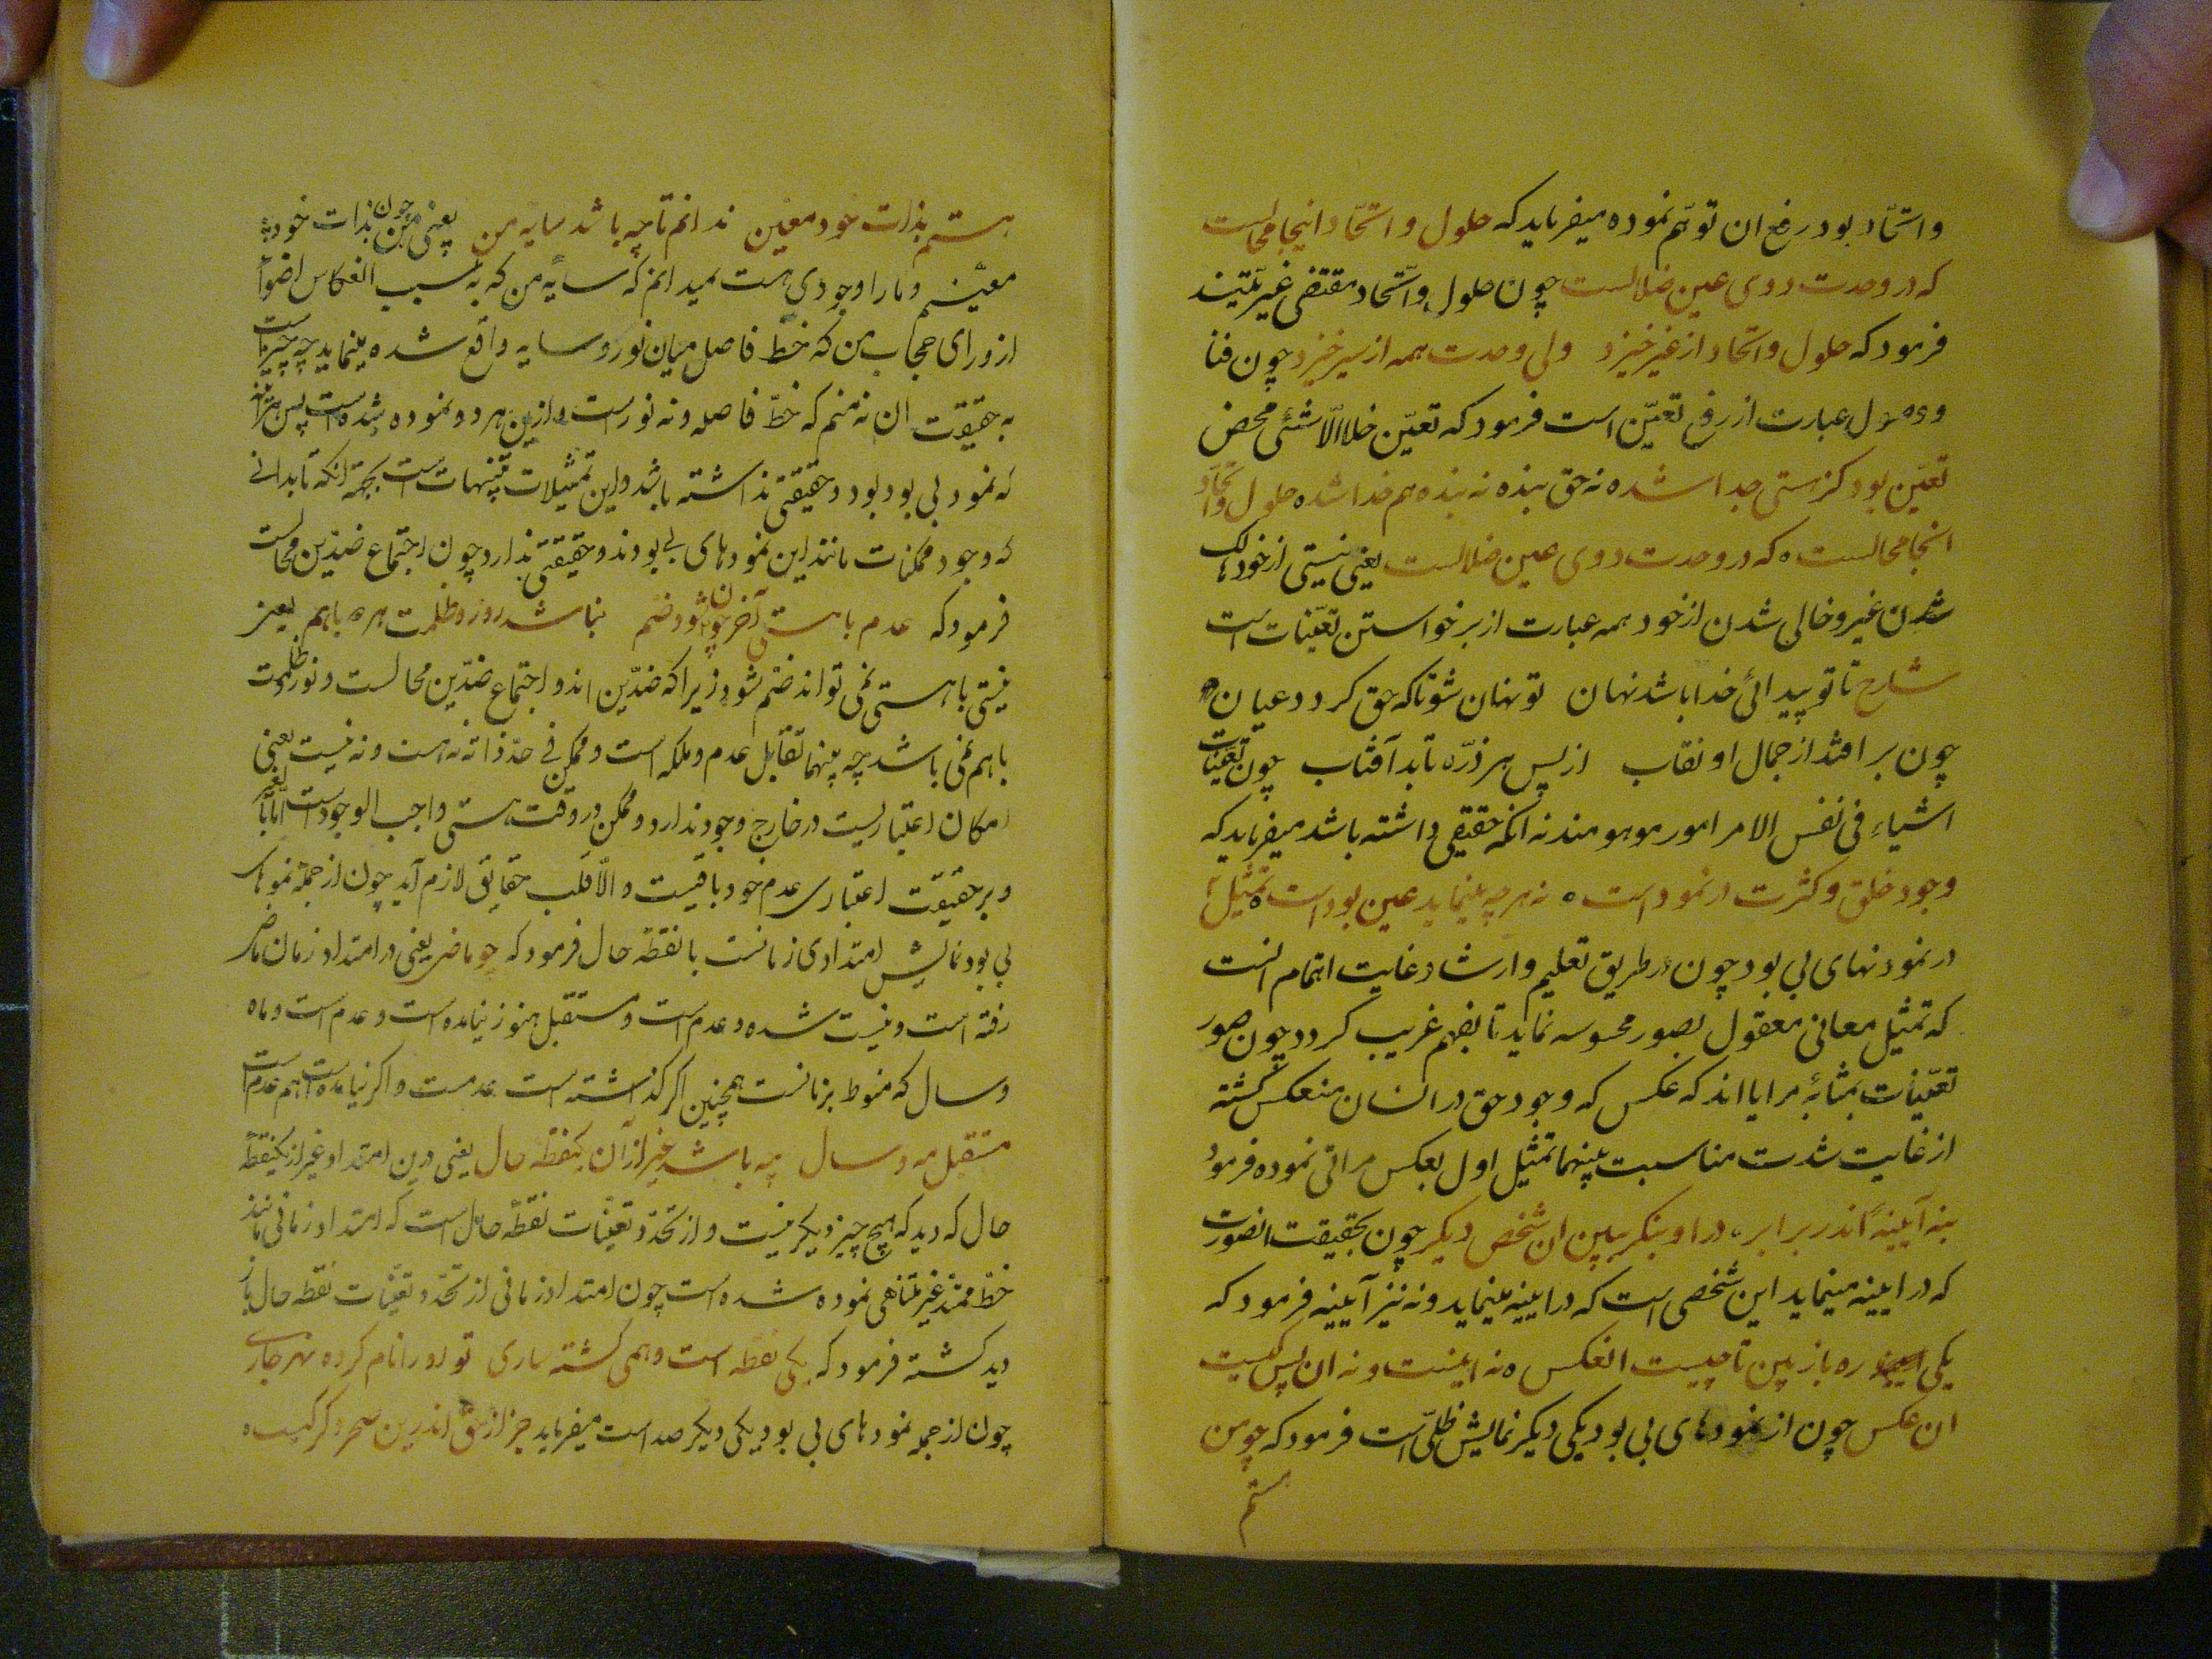 واتحاد بود رفع ان توهم نموده میفرماید که حلول و اتحاد اینجا محالست
که در وحدت دوی عین ضلالست چون حلول و اتحاد مقتضی غیریتند
فرمود که حلول و اتحاد از غیر خیزد ولی وحدت همه از سیر خیزد چون فنا
و وصول عبارت از رفع تعین است فرمود که تعین خلا الا شئی محض
تعین بود کز هستی جدا شده نه حق بنده نه بنده هم خدا شده حلول و اتحاد
اینجا محالست که در وحدت دوی عین ضلالست یعنی نیستی از خود هالک
شدن غیر و خالی شدن از خود همه عبارت از برخواستن تعینات است
شارح تا تو پیدائی خدا باشد نهان تو نهان شو تا که حق کردد عیان
چون بر افتد از جمال او نقاب از پس هر ذره تابد آفتاب چون تعینات
اشیاء فی نفس الامر امور موهومند نه انکه حقیقی داشته باشد میفرماید که
وجود خلق و کثرت در نمود است نه هرچه مینماید عین بود است تمثیل
در نمودنهای بی بود چون در طریق تعلیم و ارشاد غایت اهتمام انست
که تمثیل معانی معقول بصور محسوسه نماید تا بفهم غریب کردد چون صور
تعینات بمثابهٔ مرایا اند که عکس که وجود حق در انسان منعکس کشته
از غایت شدت مناسبت بینهما تمثیل اول بعکس مراتی نموده فرمود
بنه آیینهٔ اندر برابر در او بنکر ببین ان شخص دیکر چون بحقیقت انصورت
که در ایینه مینماید این شخصی است که در ایینه مینماید و نه نیز آیینه فرمود که
یکی ره باز بین تا چیست انعکس نه اینست و نه ان پس کیست
ان عکس چون از نمودهای بی بود یکی دیکر نمایش ظلی است فرمود که چو من
هستم
هستم بذات خود معین ندانم تا چه باشد سایه من یعنی چون من بذات خود
معینم و مارا وجودی هست نمیدانم که سایهٔ من که به سبب انعکاس اضوا
از ورای حجاب من که خط فاصل میان نور و سایه واقع شده مینماید چه چیز است
به حقیقت ان نه منم که خط فاصله و نه نور است و ازین هر دو نموده شده است پس
که نمود بی بود بود و حقیقتی نداشته باشد و این تمثیلات تنبیهات است بجهة انکه تا بدانی
که وجود ممکنات مانند این نمودهای بی بودند و حقیقتی ندارد چون اجتماع ضدین محالست
فرمود که عدم با هستی آخر چون شود ضم نباشد روز و ظلمت هر دو باهم یعنی
نیستی با هستی نمی تواند ضم شود زیرا که ضدین اند و اجتماع ضدین محالست و نور و ظلمت
باهم نمی باشد چه بینهما تقابل عدم و ملکه است و ممکن فی حد ذاته نه هست و نه نیست یعنی
امکان اعتباریست در خارج وجود ندارد و ممکن در وقت هستی واجب الوجود است
و بر حقیقت اعتباری عدم خود باقیست و الا قلب حقایق لازم آید چون از جمله نمودهای
بی بود نمایش امتدادی زمانست با نقطه حال فرمود که چو ماضی یعنی در امتداد زمان ماضی
رفته است و نیست شده و عدم است و مستقبل هنوز نیامده است و عدم است و ماه
و سال که منوط بزمانست همچنین اکر کذشته است عدمست و اکر نیامده است هم عدم است
مستقبل مه و سال چه باشد غیر از آن یکنقطه حال یعنی درین امتداد غیر از یکنقطه
حال که دید که هیچ چیز دیکر نیست و از تجدد تعینات نقطهٔ حال است که امتداد زمانی مانند
خط ممتد غیر متناهی نموده شده است چون امتداد زمانی از تجدد تعینات نقطه حال باز
دید کشته فرمود که یکی نقطه است وهمی کشته ساری تو او را نام کرده نهر جاری
چون از جمله نمودهای بی بود یکی دیکر صد است میفرماید جز از حق اندرین صحرا دکر کیست